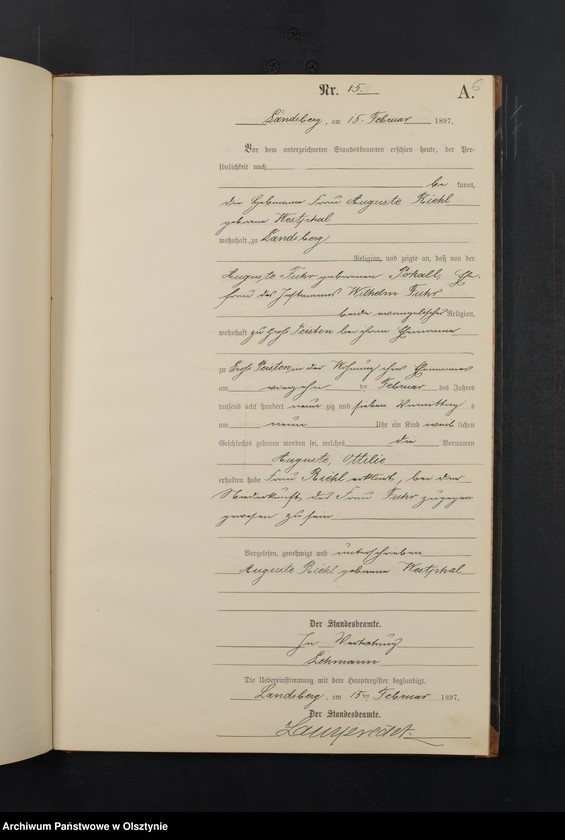 Nr. 15.
A. 6
Landsberg, am 15. Februar 1897.
Vor dem unterzeichneten Standesbeamten erschien heute, der Per-
sönlichkeit nach
be kannt,
die Hebamme Frau Auguste Riehl
geborene Westphal
wohnhaft zu Landsberg
Religion, und zeigte an, daß von der
Auguste Fuhr geborenen Pokall, Ehe-
frau des Instmanns Wilhelm Fuhr
beide evangelischer Religion,
wohnhaft zu Groß Peisten bei ihrem Ehemanne
zu Groß Peisten in der Wohnung ihres Ehemannes
am vierzehn ten Februar des Jahres
tausend acht hundert neun zig und sieben Vormittag s
um neun Uhr ein Kind weib lichen
Geschlechts geboren worden sei, welches die Vornamen
Auguste, Ottilie
erhalten habe Frau Riehl erklärt, bei der
Niederkunft der Frau Fuhr zugegen
gewesen zu sein
Vorgelesen, genehmigt und unterschrieben
Auguste Riehl geborene Westphal
Der Standesbeamte.
In Vertretung
Lehmann
Die Uebereinstimmung mit dem Hauptregister beglaubigt.
Landsberg, am 15ten Februar 1897.
Der Standesbeamte.
Archiwum Państwowe w Olsztynie